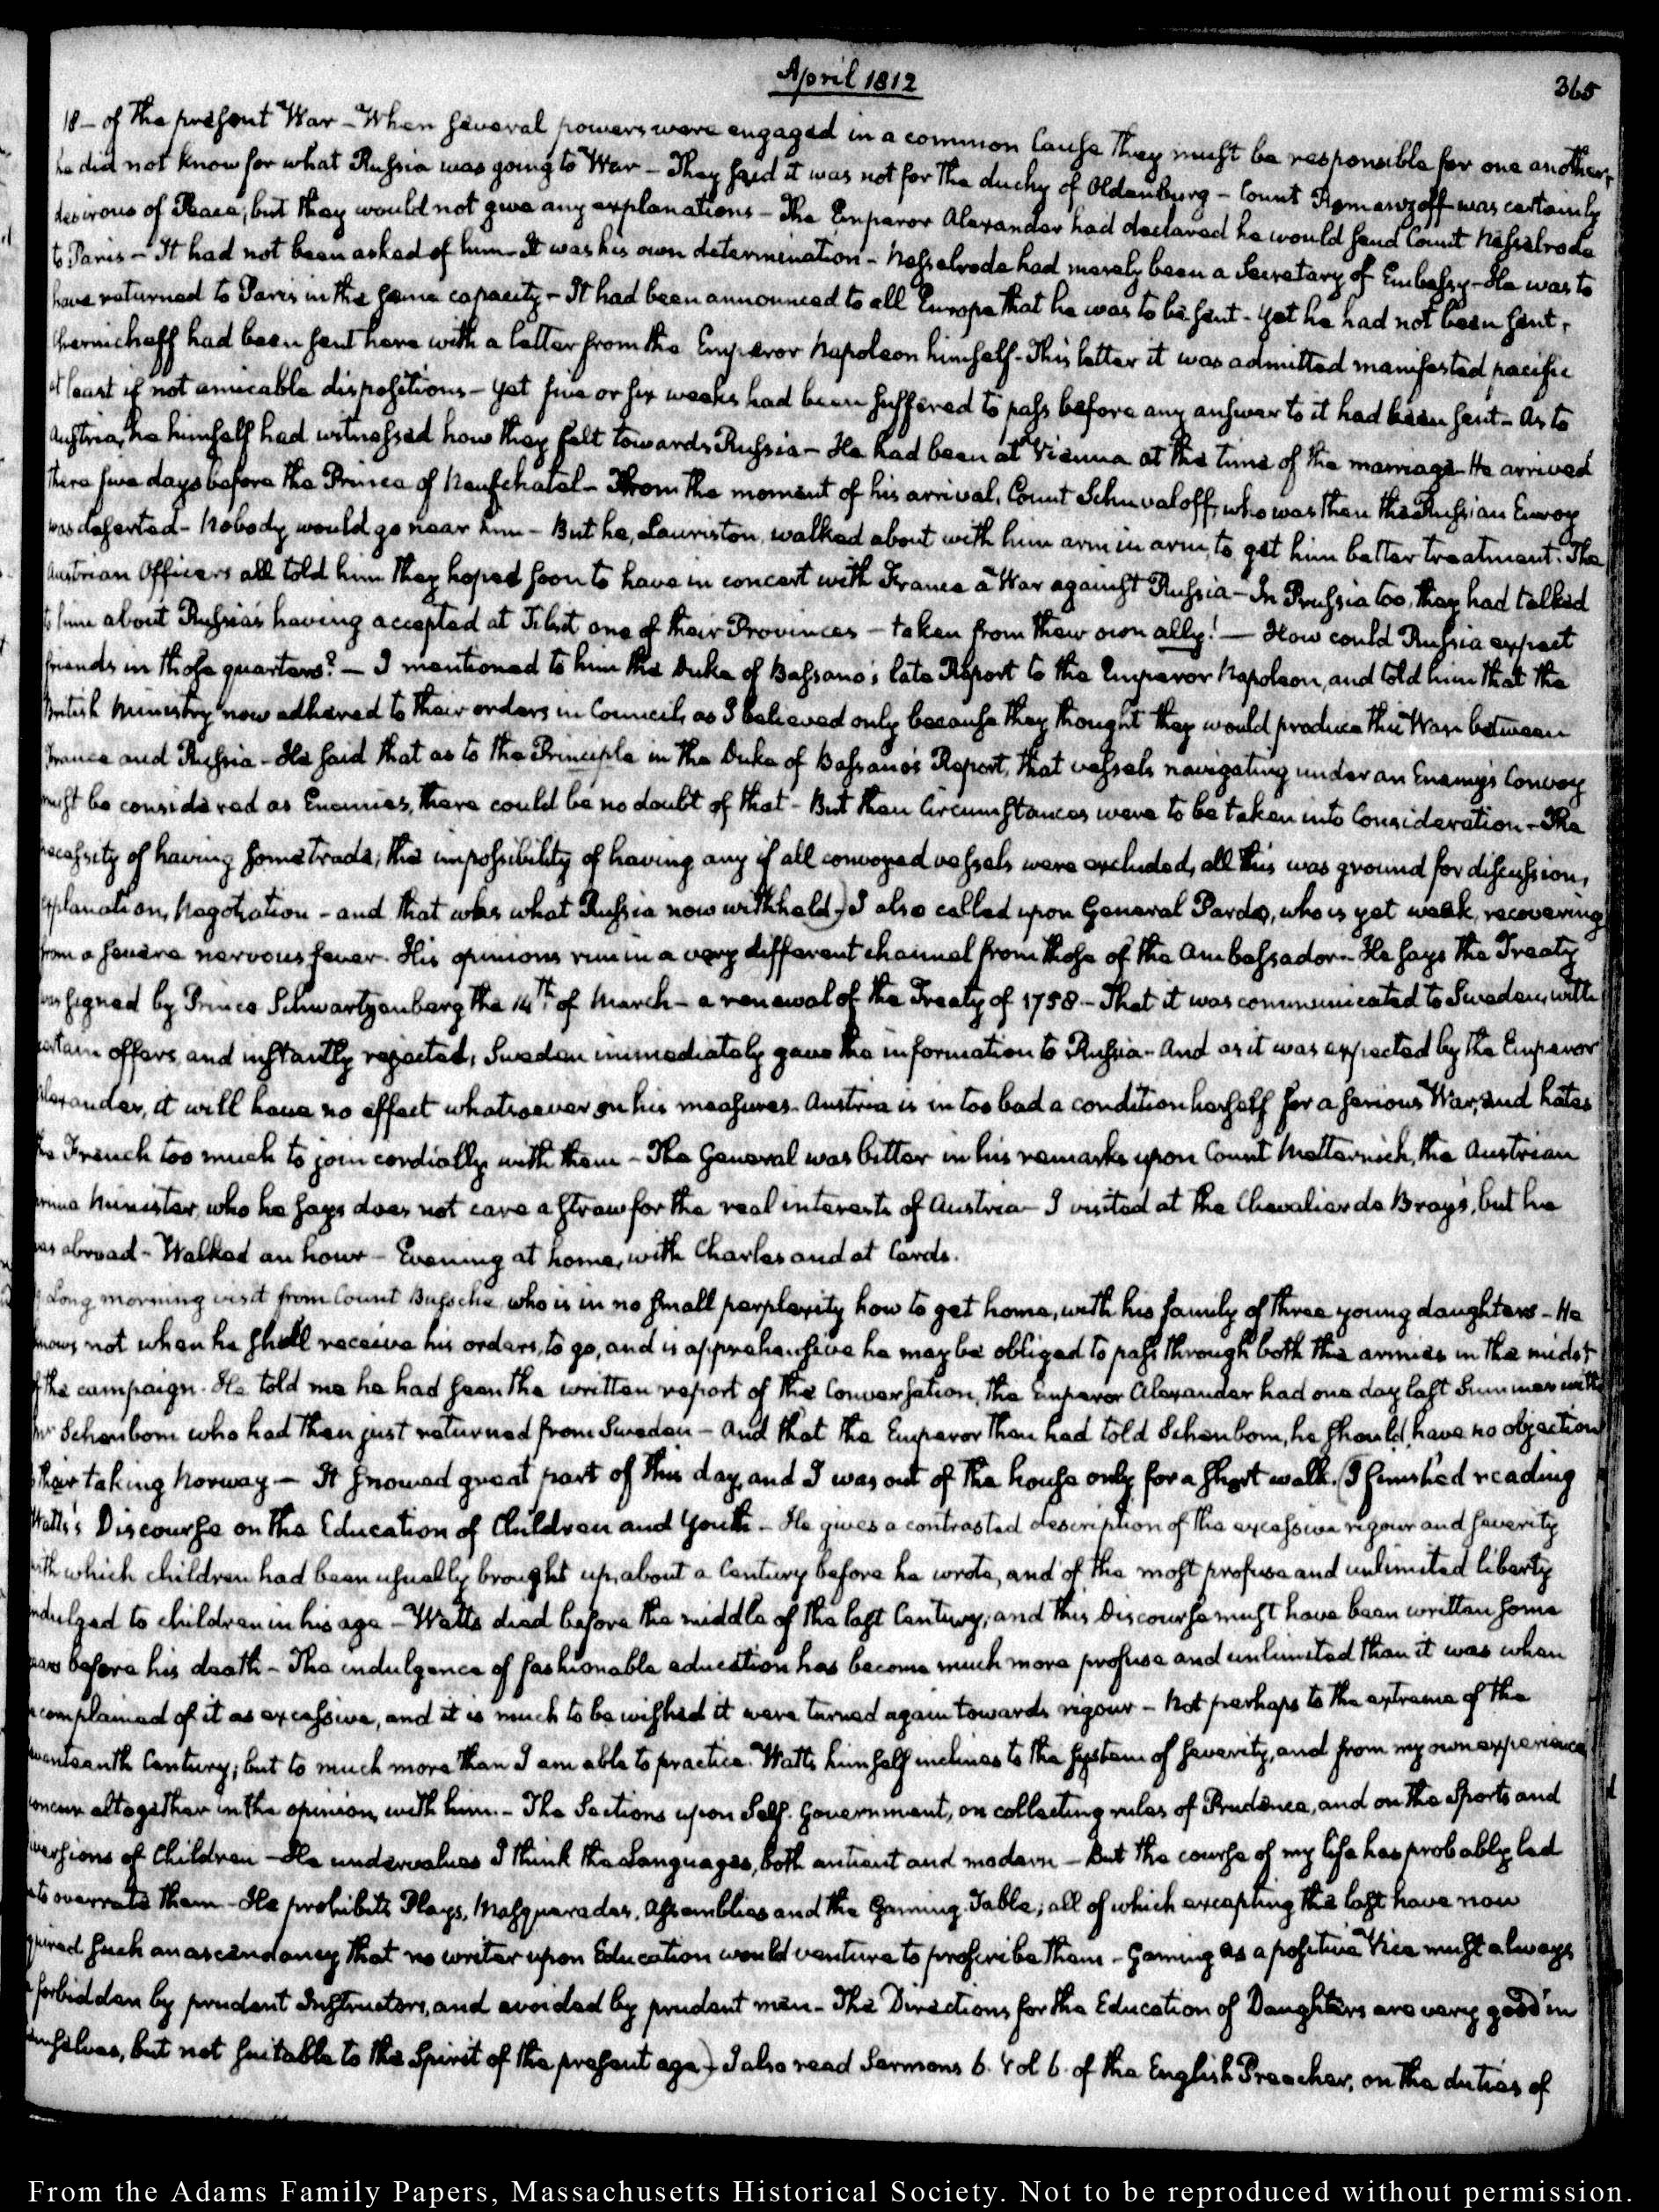 April 1812
365
18 – of the present War – When several powers were engaged in a common Cause they must be responsible for one another,
he did not know for what Russia was going to War – They said it was not for the duchy of Oldenburg – Count Romanzoff was certainly
desirous of Peace; but they would not give any explanations – The Emperor Alexander had declared he would send Count Nesselrode
to Paris – It had not been asked of him – It was his own determination – Nesselrode had merely been a Secretary of Embassy – He was to
have returned to Paris in the same capacity – It had been announced to all Europe that he was to be sent – yet he had not been sent.
Chernicheff had been sent here with a letter from the Emperor Napoleon himself – This letter it was admitted manifested pacific
at least if not amicable dispositions – yet five or six weeks had been suffered to pass before any answer to it had been sent – As to
Austria, he himself had witnessed how they felt towards Russia – He had been at Vienna at the time of the marriage – He arrived
there five days before the Prince of Neufchatel – From the moment of his arrival, Count Schuvaloff, who was then the Russian Envoy
was deserted – Nobody would go near him – But he, Lauriston, walked about with him arm in arm, to get him better treatment. The
Austrian Officers all told him they hoped soon to have in concert with France a War against Russia – In Prussia too, they had talked
to him about Russia's having accepted at Tilsit one of their Provinces – taken from their own ally! – How could Russia expect
friends in those quarters? – I mentioned to him the Duke of Bassano's late Report to the Emperor Napoleon, and told him that the
British Ministry now adhered to their orders in Council, as I believed only because they thought they would produce this War between
France and Russia – He said that as to the Principle in the Duke of Bassano's Report, that vessels navigating under an Enemy's Convoy
must be considered as Enemies, there could be no doubt of that – But then Circumstances were to be taken into Consideration – The
necessity of having some trade; the impossibility of having any if all convoyed vessels were excluded, all this was ground for discussion,
explanation, Negotiation – and that was what Russia now withheld.) I also called upon General Pardo, who is yet weak, recovering
from a severe nervous fever. His opinions run in a very different channel from those of the Ambassador – He says the Treaty
was signed by Prince Schwartzenberg the 14th of March – a renewal of the Treaty of 1758 – That it was communicated to Sweden, with
certain offers, and instantly rejected, Sweden immediately gave the information to Russia – And as it was expected by the Emperor
Alexander, it will have no effect whatsoever on his measures. Austria is in too bad a condition herself for a serious War, and hates
the French too much to join cordially with them – The General was bitter in his remarks upon Count Metternich, the Austrian
prime Minister, who he says does not care a straw for the real interests of Austria – I visited at the Chevalier de Bray's, but he
was abroad – Walked an hour – Evening at home, with Charles and at Cards.
Long morning visit from Count Bussche, who is in no small perplexity how to get home, with his family of three young daughters – He
knows not when he shall receive his orders, to go, and is apprehensive he may be obliged to pass through both the armies in the midst
of the campaign. He told me he had seen the written report of the Conversation, the Emperor Alexander had one day last Summer with
Mr Schenbom who had then just returned from Sweden – and that the Emperor then had told Schenbom, he should have no objection
to their taking Norway – It snowed great part of this day, and I was out of the house only for a short walk. (I finish'd reading
Watts's Discourse on the Education of Children and Youth – He gives a contrasted description of the excessive rigour and severity
with which children had been usually brought up, about a Century before he wrote, and of the most profuse and unlimited liberty
indulged to children in his age – Watts died before the middle of the last Century; and this Discourse must have been written some
years before his death – The indulgence of fashionable education has become much more profuse and unlimited than it was when
he complained of it as excessive, and it is much to be wished it were turned again towards rigour – Not perhaps to the extreme of the
seventeenth Century; but to much more than I am able to practice. Watts himself inclines to the system of severity, and from my own experience
concur altogether in the opinion, with him. – The Sections upon Self-Government, on collecting rules of Prudence, and on the Sports and
diversions of Children – He undervalues I think the Languages, both antient and modern – But the course of my life has probably led
me to overrate them – He prohibits Plays, Masquerades, Assemblies and the Gaming-Table; all of which excepting the last have now
acquired such an ascendancy that no writer upon Education would venture to proscribe them – Gaming as a positive Vice must always
be forbidden by prudent Instructors, and avoided by prudent men – The Directions for the Education of Daughters are very good in
themselves, but not suitable to the Spirit of the present age.) I also read Sermons 6. Vol 6. of the English Preacher, on the duties of
From the Adams Family Papers, Massachusetts Historical Society. Not to be reproduced without permission.